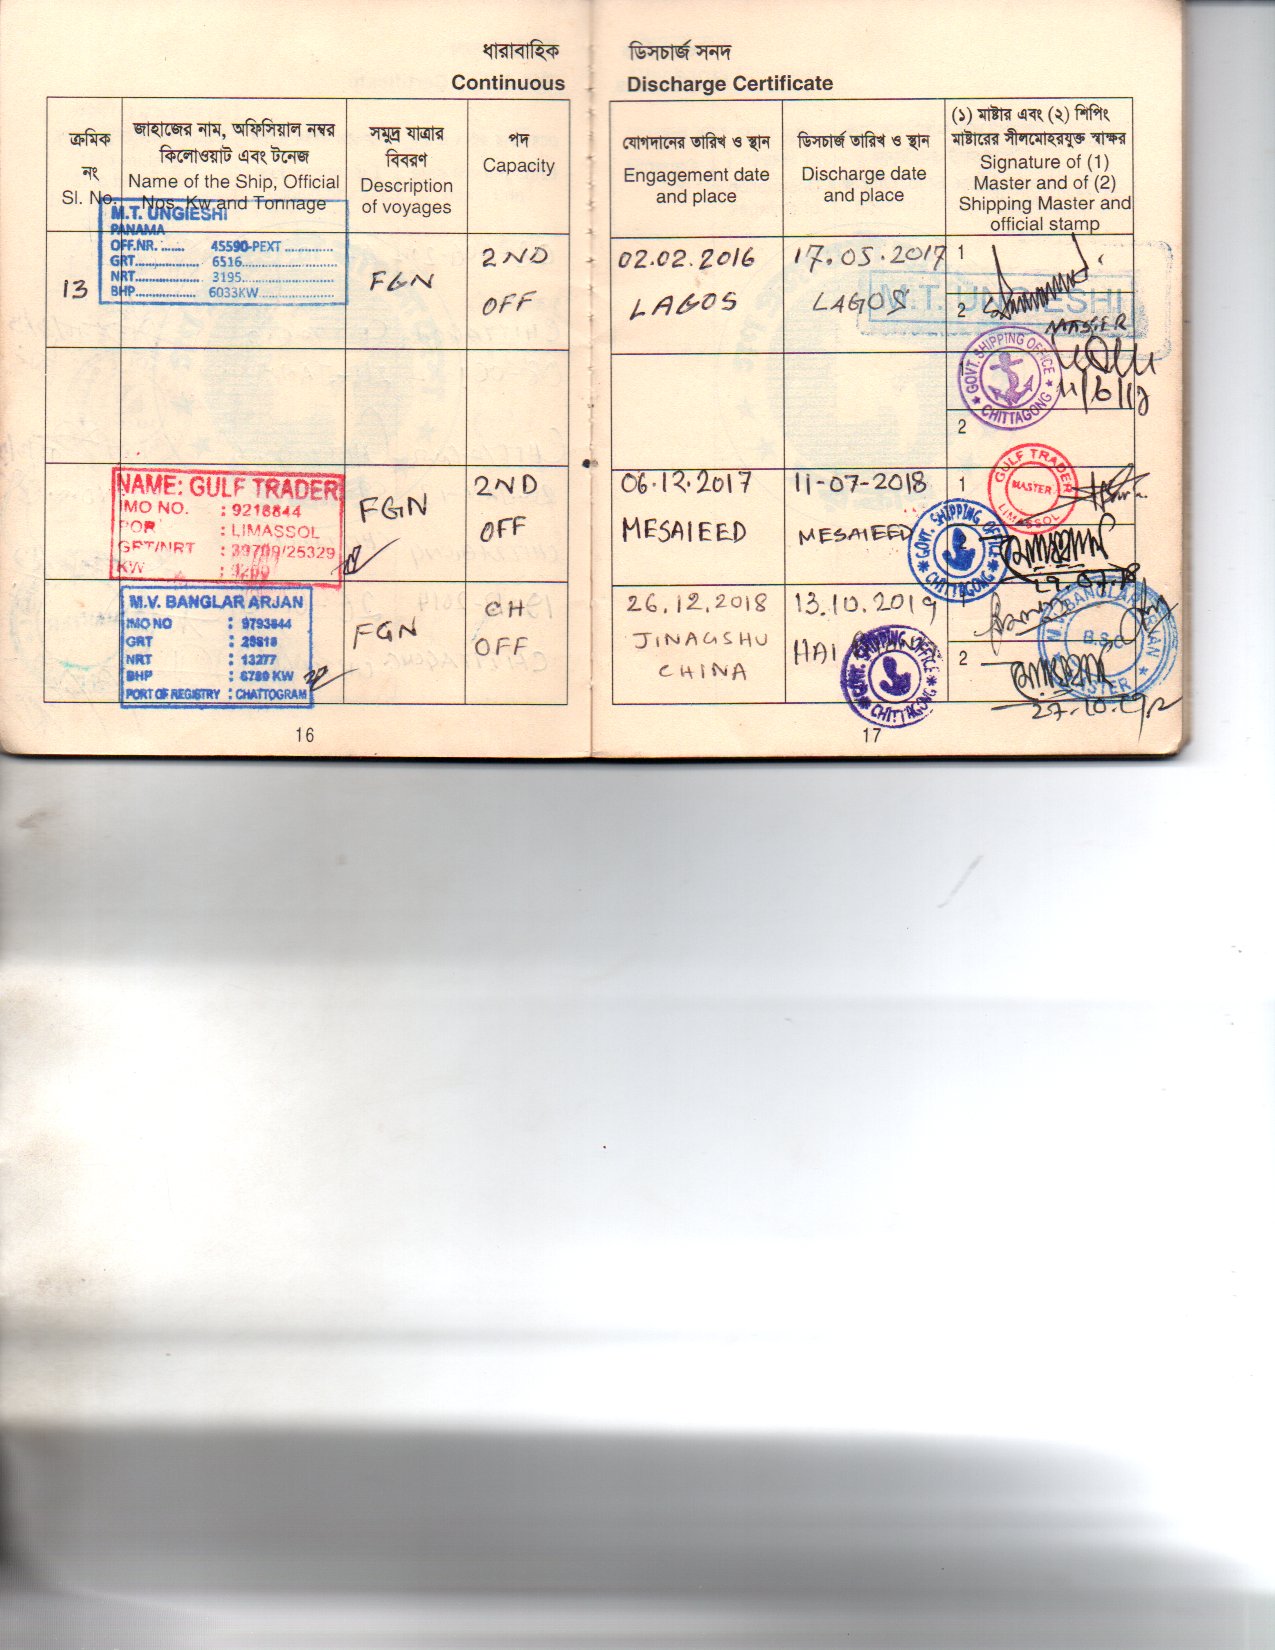 ধারাবাহিক
Continuous
ক্রমিক
নং
Sl. No.
জাহাজের নাম, অফিসিয়াল নম্বর
কিলোওয়াট এবং টনেজ
Name of the Ship, Official
Nos. Kw and Tonnage
সমুদ্র যাত্রার
বিবরণ
Description
of voyages
পদ
Capacity
13
M.T. UNGIESHI
PANAMA
OFF.NR. ....... 45590-PEXT .............
GRT.................... 6516..............................
NRT.................... 3195..............................
BHP................... 6033KW.........................
FGN
2ND
OFF
NAME: GULF TRADER
IMO NO. : 9218844
POR : LIMASSOL
GRT/NRT : 39709/25329
KW
FGN
2ND
OFF
M.V. BANGLAR ARJAN
IMO NO : 9793844
GRT : 25818
NRT : 13277
BHP : 6789 KW
PORT OF REGISTRY : CHATTOGRAM
FGN
CH
OFF
16
ডিসচার্জ সনদ
Discharge Certificate
যোগদানের তারিখ ও স্থান
Engagement date
and place
ডিসচার্জ তারিখ ও স্থান
Discharge date
and place
(১) মাষ্টার এবং (২) শিপিং
মাষ্টারের সীলমোহরযুক্ত স্বাক্ষর
Signature of (1)
Master and of (2)
Shipping Master and
official stamp
02.02.2016
LAGOS
17.05.2017
LAGOS
1
2
M.T. UNGIESHI
MASTER
1
2
GOVT. SHIPPING OFFICE
CHITTAGONG
11/6/17
06.12.2017
MESAIEED
11-07-2018
MESAIEED
1
2
GULF TRADER
MASTER
LIMASSOL
GOVT. SHIPPING OFFICE
CHITTAGONG
29.07.18
26.12.2018
JINAGSHU
CHINA
13.10.2019
HAI
1
2
GOVT. SHIPPING OFFICE
CHITTAGONG
M.V. BANGLAR ARJAN
B.S.C
MASTER
27.10.19
17